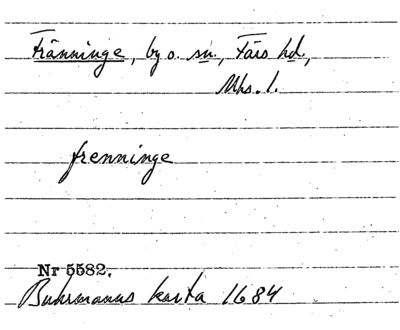 Fränninge, by o. sn, Färs hd,
Mhs. l.
frenninge
Nr 5582.
Buhrmanns karta 1684